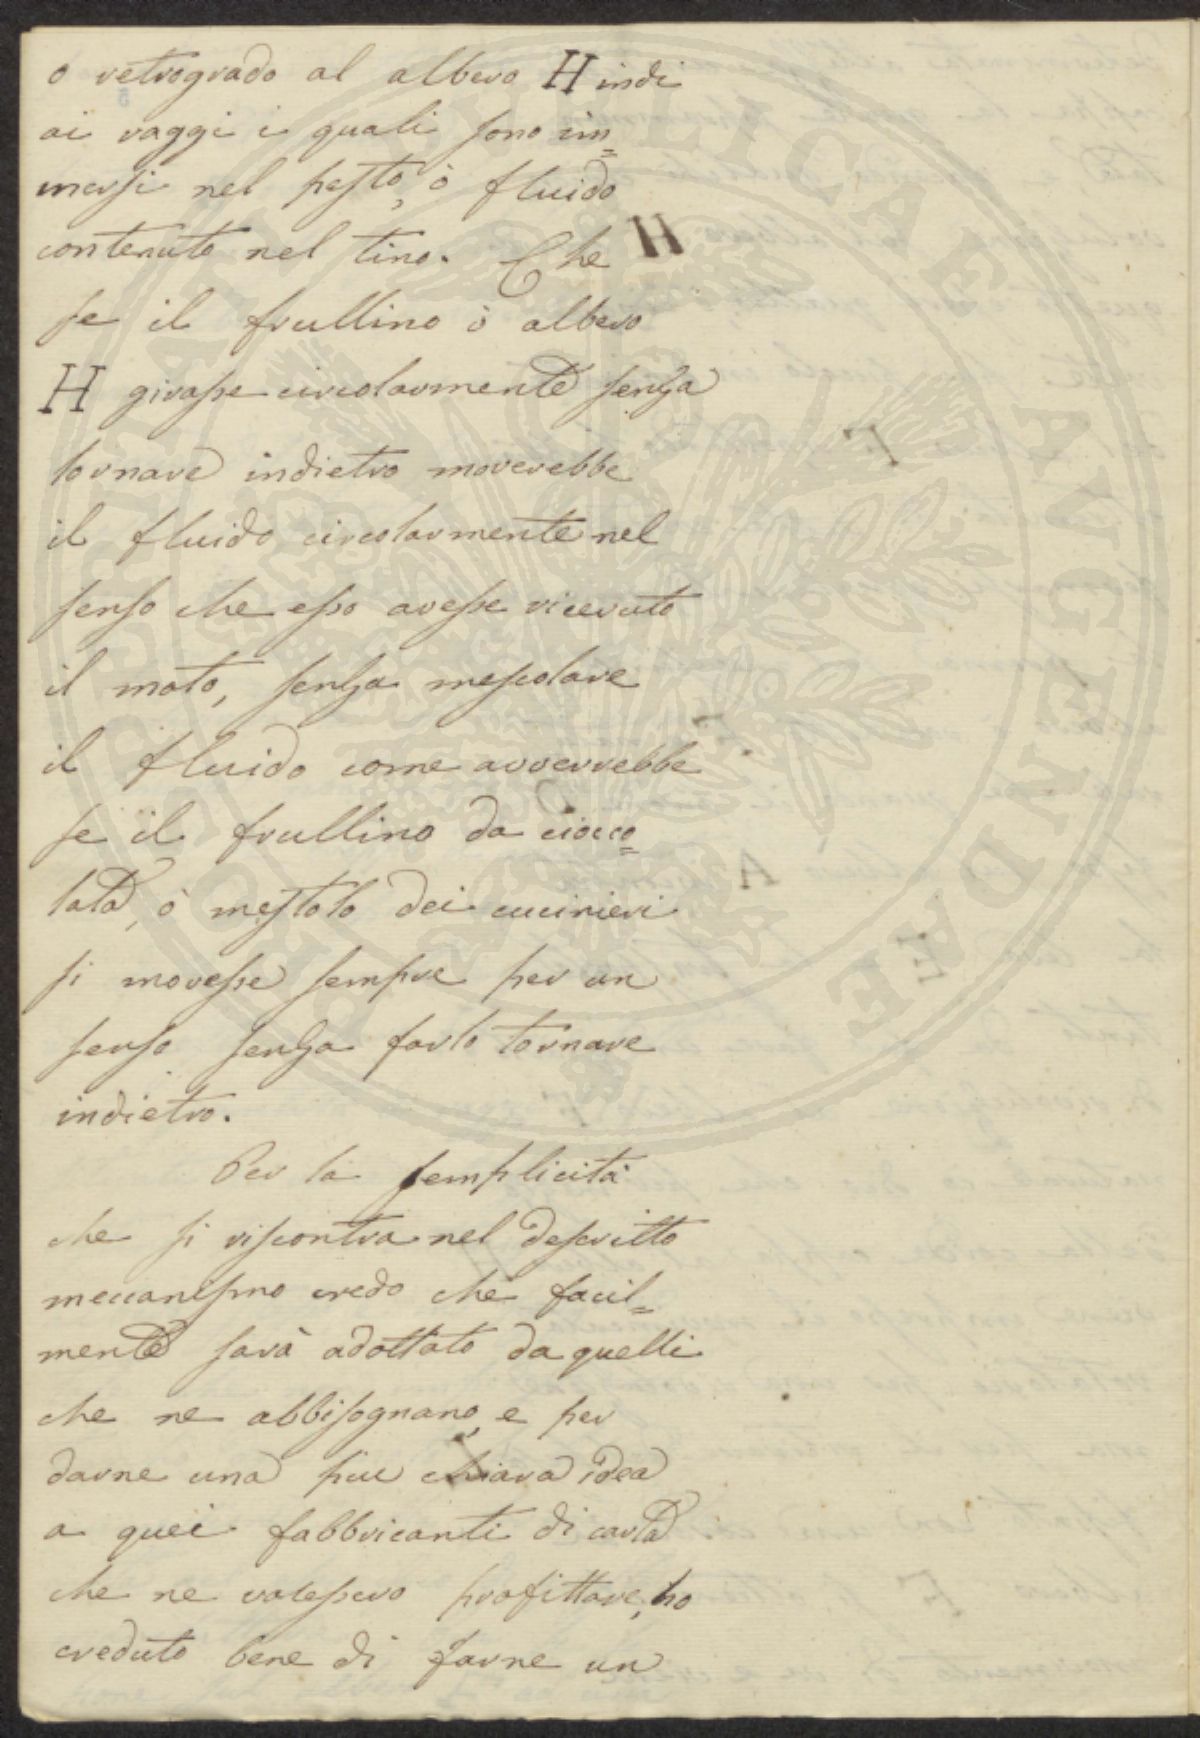 o retrogrado al albero H indi
ai raggi i quali sono im=
mersi nel pesto, ò fluido
contenuto nel tino. Che
se il frullino ò albero
H girasse circolarmente senza
tornare indietro moverebbe
il fluido circolarmente nel
senso che esso avesse ricevuto
il moto, senza mescolare
il fluido come avverrebbe
se il frullino da ciocco=
lata, ò mestolo dei cucinieri
si movesse sempre per un
senso senza farlo tornare
indietro.
Per la semplicità
che si riscontra nel descritto
meccanismo credo che facil=
mente sarà adottato da quelli
che ne abbisognano, e per
darne una più chiara idea
a quei fabbricanti di carta
che ne volessero profittare, ho
creduto bene di farne un
PROSPERITATI PVBLICAE AVGENDAE